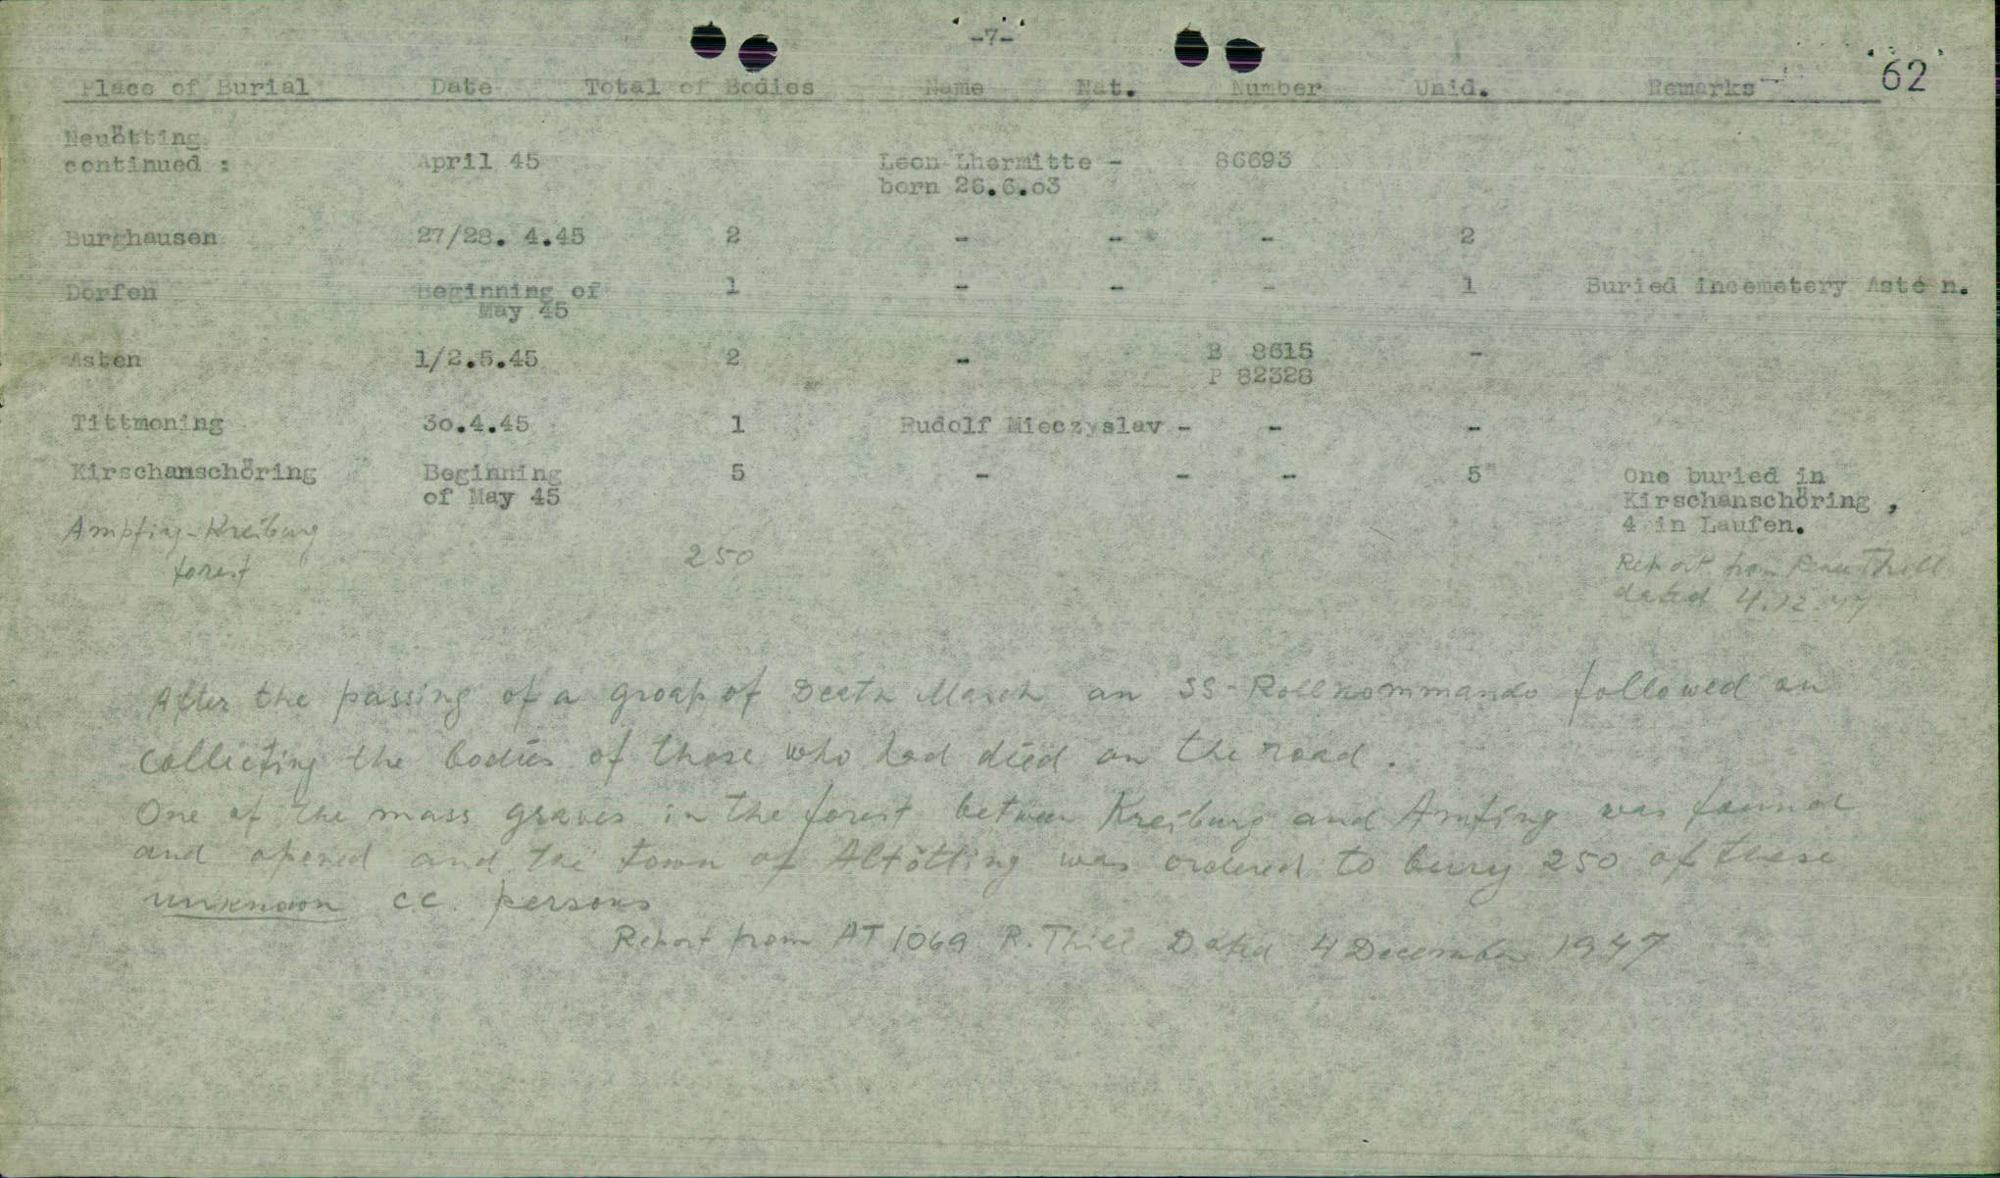 -7-
62
Place of Burial Date Total of Bodies Name Nat. Number Unid. Remarks
Neuötting
continued : April 45 Leon Lhermitte - 86693
born 26.6.o3
Burghausen 27/28. 4.45 2 - - - 2
Dorfen Beginning of 1 - - - 1 Buried incemetery Aste n.
May 45
Asten 1/2.5.45 2 - B 8615 -
P 82328
Tittmoning 3o.4.45 1 Rudolf Mieczyslav - - -
Kirschanschöring Beginning 5 - - - 5 One buried in
of May 45 Kirschanschöring ,
4 in Laufen.
Ampfing-Kreiburg
forest 250 Report from Thill
dated 4.12.47
After the passing of a group of Death March an SS-Rollkommando followed on
collecting the bodies of those who had died on the road.
One of the mass graves in the forest between Kreiburg and Ampfing was found
and opened and the town of Altötting was ordered to bury 250 of these
unknown c.c. persons
Report from AT 1069 R. Thill Dated 4 December 1947